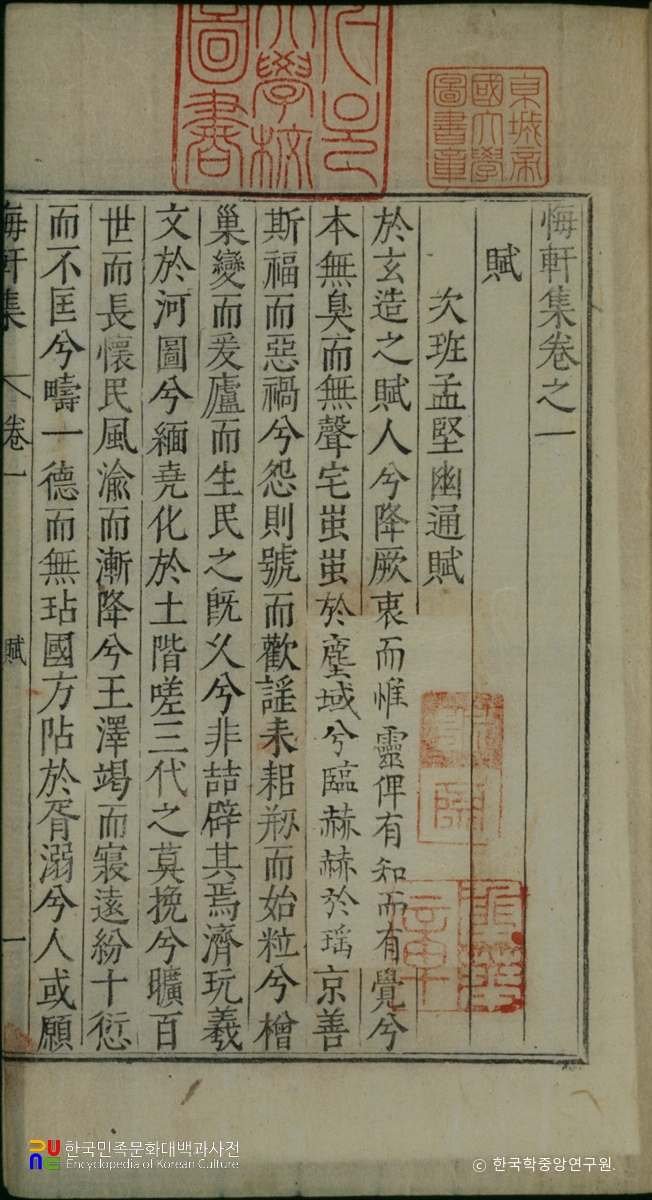 悔軒集卷之一
賦
次班孟堅幽通賦
於玄造之賦人兮降厥衷而惟靈俾有知而有覺兮
本無臭而無聲宅蚩蚩於塵域兮臨赫赫於瑤京善
斯福而惡禍兮怨則號而歡謠耒耜刱而始粒兮橧
巢變而爰廬而生民之旣乂兮非喆辟其焉濟玩羲
文於河圖兮緬堯化於土階嗟三代之莫挽兮曠百
世而長懷民風渝而漸降兮王澤竭而寢遠紛十愆
而不匡兮疇一德而無玷國方阽於胥溺兮人或願
悔軒集 卷一 賦 一
京城帝
國大學
圖書章
大學校
圖書
한국민족문화대백과사전
Encyclopedia of Korean Culture
ⓒ 한국학중앙연구원.